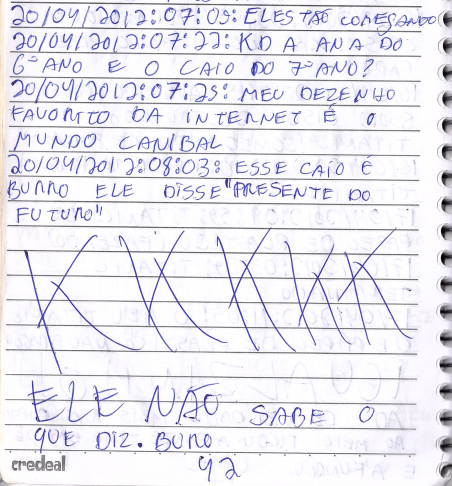 20/04/2012:07:09: ELES TÃO COMESANDO
20/04/2012:07:22: KD A ANA DO
6º ANO E O CAIO DO 7º ANO?
20/04/2012:07:29: MEU DEZENHO
FAVORITO DA INTERNET É O
MUNDO CANIBAL
20/04/2012:08:03: ESSE CAIO É
BURRO ELE DISSE "PRESENTE DO
FUTURO"
KKKKK
ELE NÃO SABE O
QUE DIZ. BURO
credeal
42